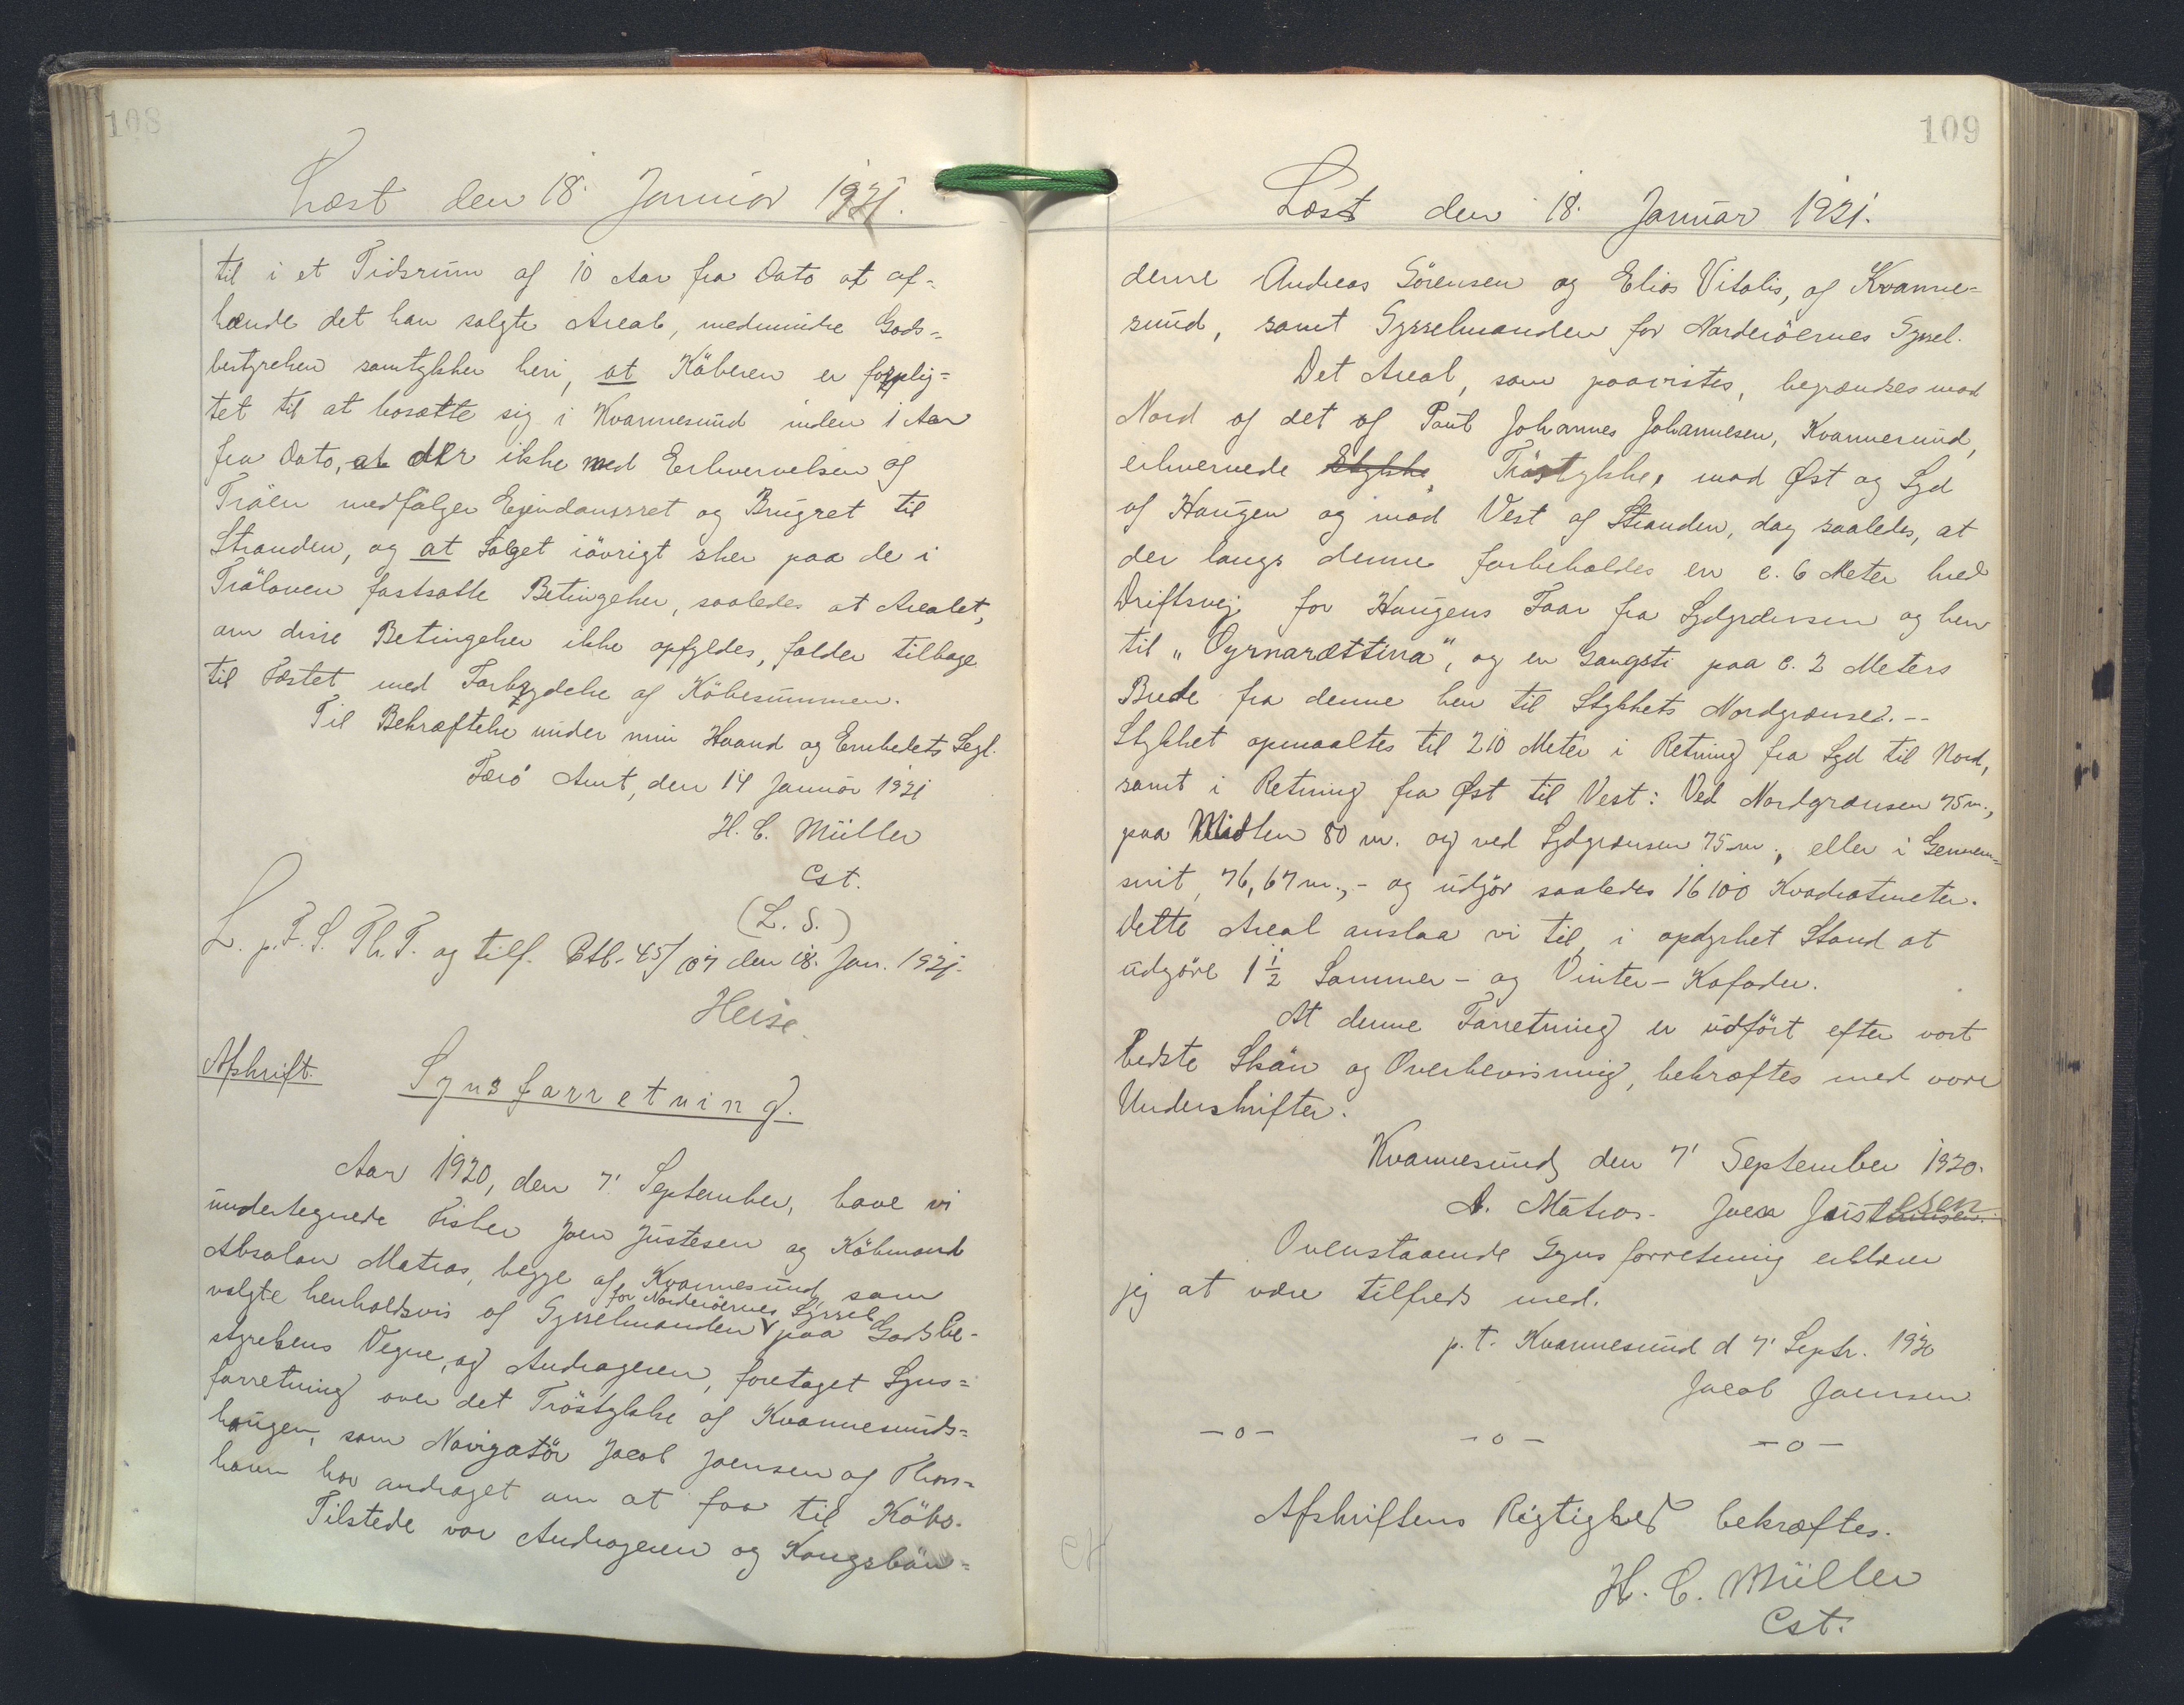 108
Læst den 18. Januar 1921.
til i et Tidsrum af 10 Aar fra Dato at af-
hænde det ham solgte Areal, medmindre Gods-
bestyrelsen samtykker heri, at Köberen er forplig-
tet til at bosætte sig i Kvannesund inden 1 Aar
fra Dato, at der ikke med Erhvervelsen af
Tröen medfölger Ejendomsret og Brugret til
Stranden, og at Salget iövrigt sker paa de i
Tröloven fastsatte Betingelser, saaledes at Arealet,
om disse Betingelser ikke opfyldes, falder tilbage
til Fæstet med Fortydelse af Köbesummen.
Til Bekræftelse under min Haand og Embedets Segl.
Færö Amt, den 14 Januar 1921
H. C. Müller
Cst.
(L. S.)
L. p. F. S. Th. T. og tilf. Ptb. 45/107 den 18. Jan. 1921.
Heise.
Afskrift.
Synsforretning.
Aar 1920, den 7' September, have vi
undertegnede Fisker Joen Justesen og Köbmand
Absalon Matras, begge af Kvannesund som
for Norderöernes Syssel
valgte henholdsvis af Sysselmanden paa Godsbe-
styrelsens Vegne, og Andrageren, foretaget Syns-
forretning over det Tröstykke af Kvannesunds-
haugen, som Navigatör Jacob Joensen af Thors-
havn har andraget om at faa til Købs.
Tilstede var Andrageren og Kongsbön-
109
Læst den 18. Januar 1921.
derne Andreas Sörensen og Elias Vitalis, af Kvanne-
sund, samt Sysselmanden for Norderöernes Syssel.
Det Areal, som paavistes, begrændses mod
Nord af det af Poul Johannes Johannesen, Kvannesund,
erhvervede Stykke, Tröstykke, mod Øst og Syd
af Haugen og mod Vest af Stranden, dog saaledes, at
der langs denne forbeholdes en c. 6 Meter bred
Driftsvej for Haugens Faar fra Sydgrænsen og hen
til "Oyrnarættina", og en Gangsti paa c. 2 Meters
Brede fra denne hen til Stykkets Nordgrænse. --
Stykket opmaaltes til 210 Meter i Retning fra Syd til Nord,
samt i Retning fra Øst til Vest: Ved Nordgrænsen 75 m.,
paa Midten 80 m. og ved Sydgrænsen 75 m., eller i Gennem-
snit 76,67 m., - og udgör saaledes 16100 Kvadratmeter.
Dette Areal anslaa vi til i opdyrket Stand at
udgöre 1 1/2 Sommer- og Vinter-Kofoder.
At denne Forretning er udfört efter vort
bedste Skön og Overbevisning, bekræftes med vore
Underskrifter.
Kvannesund, den 7' September 1920.
A. Matras. Joen Justesen.
Ovenstaaende Synsforretning erklærer
jeg at være tilfreds med.
p. t. Kvannesund d 7' Septr. 1920
Jacob Joensen
-o- -o- -o-
Afskriftens Rigtighed bekræftes.
H. C. Müller
Cst.